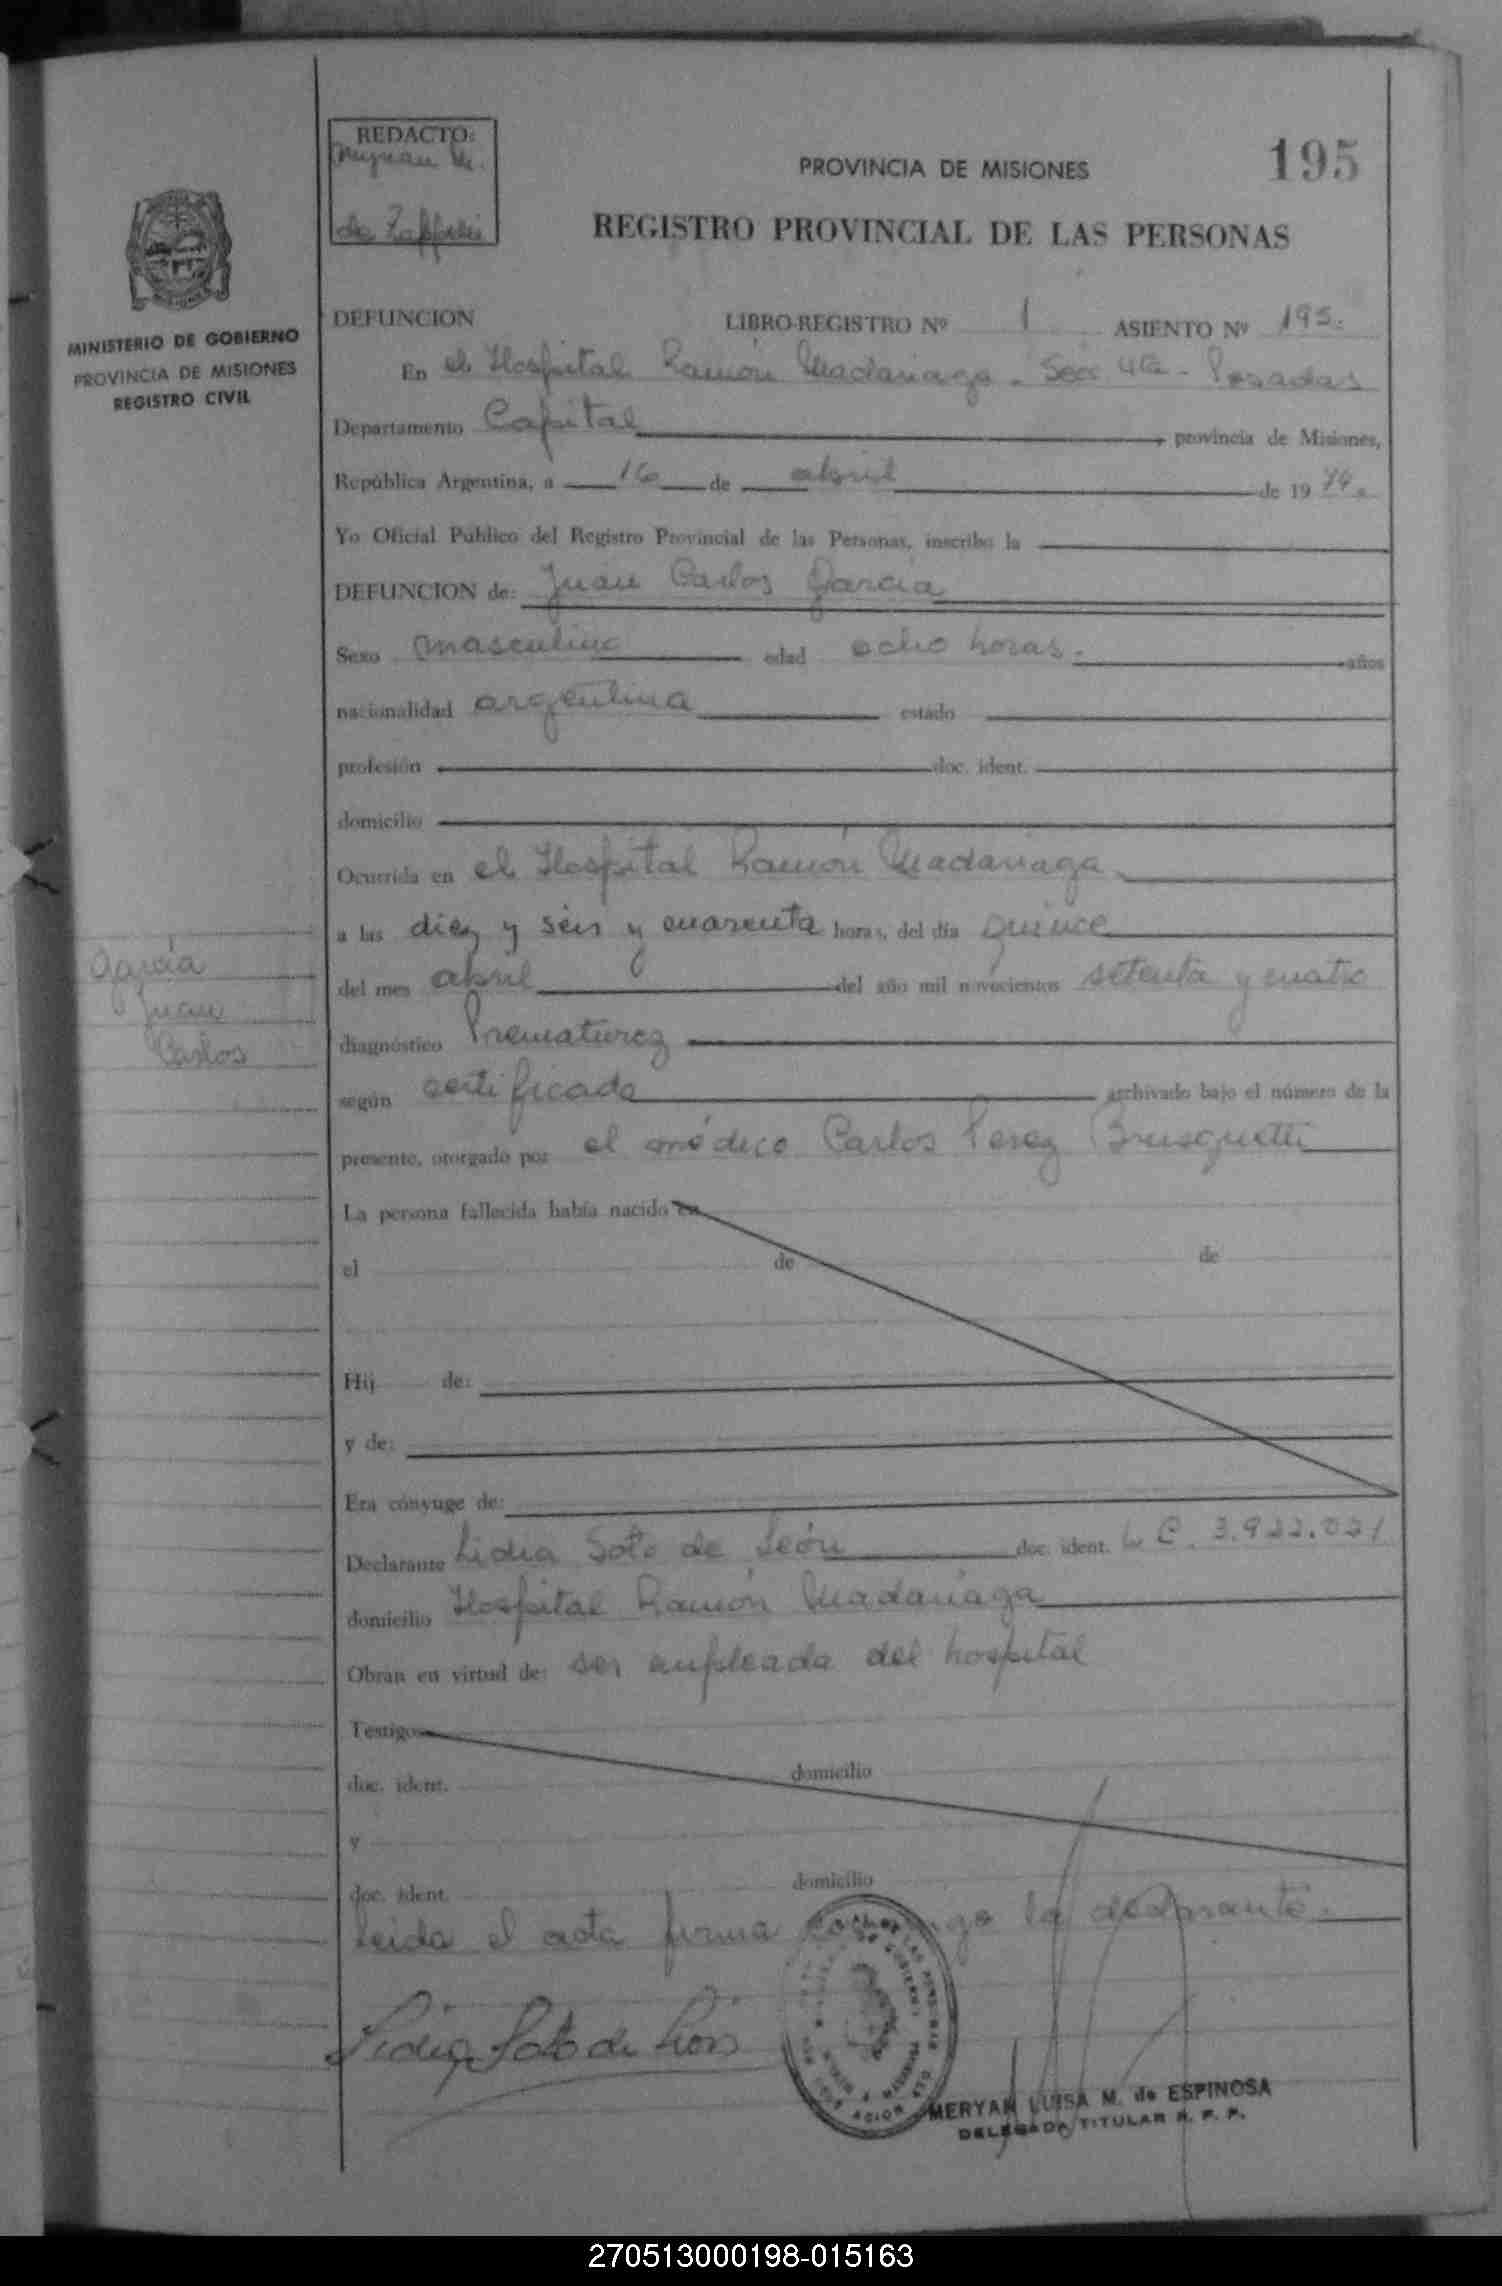 195
REDACTO:
de
PROVINCIA DE MISIONES
REGISTRO PROVINCIAL DE LAS PERSONAS
MINISTERIO DE GOBIERNO
PROVINCIA DE MISIONES
REGISTRO CIVIL
DEFUNCION LIBRO-REGISTRO Nº 1 ASIENTO Nº 195.
En el Hospital Ramón Madariaga - Secc 4ta - Posadas
Departamento Capital provincia de Misiones,
República Argentina, a 16 de abril de 1974.
Yo Oficial Público del Registro Provincial de las Personas, inscribo la
DEFUNCION de: Juan Carlos García
Sexo masculino edad ocho horas. años
nacionalidad argentina estado
profesión doc. ident.
domicilio
Ocurrida en el Hospital Ramón Madariaga
a las diez y seis y cuarenta horas, del día quince
del mes abril del año mil novecientos setenta y cuatro
diagnóstico Prematurez
según certificado archivado bajo el número de la
presente, otorgado por el médico Carlos Perez Brusquetti
García
Juan
Carlos
La persona fallecida había nacido en
el de de
Hij de:
y de:
Era cónyuge de:
Declarante Lidia Soto de León doc. ident. L C. 3.922.021
domicilio Hospital Ramón Madariaga
Obran en virtud de: ser empleada del hospital
Testigos
doc. ident. domicilio
y
doc. ident. domicilio
leida el acta firma la declarante.
Lidia Soto de León
MERYAN LUISA M. de ESPINOSA
DELEGADA TITULAR R. P. P.
270513000198-015163